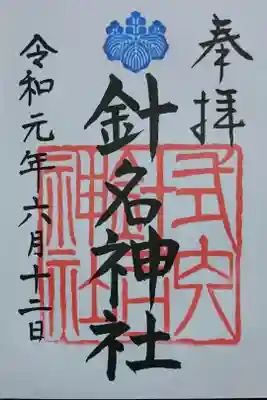 奉拝
針名神社
式内
針名
神社
令和元年六月十二日